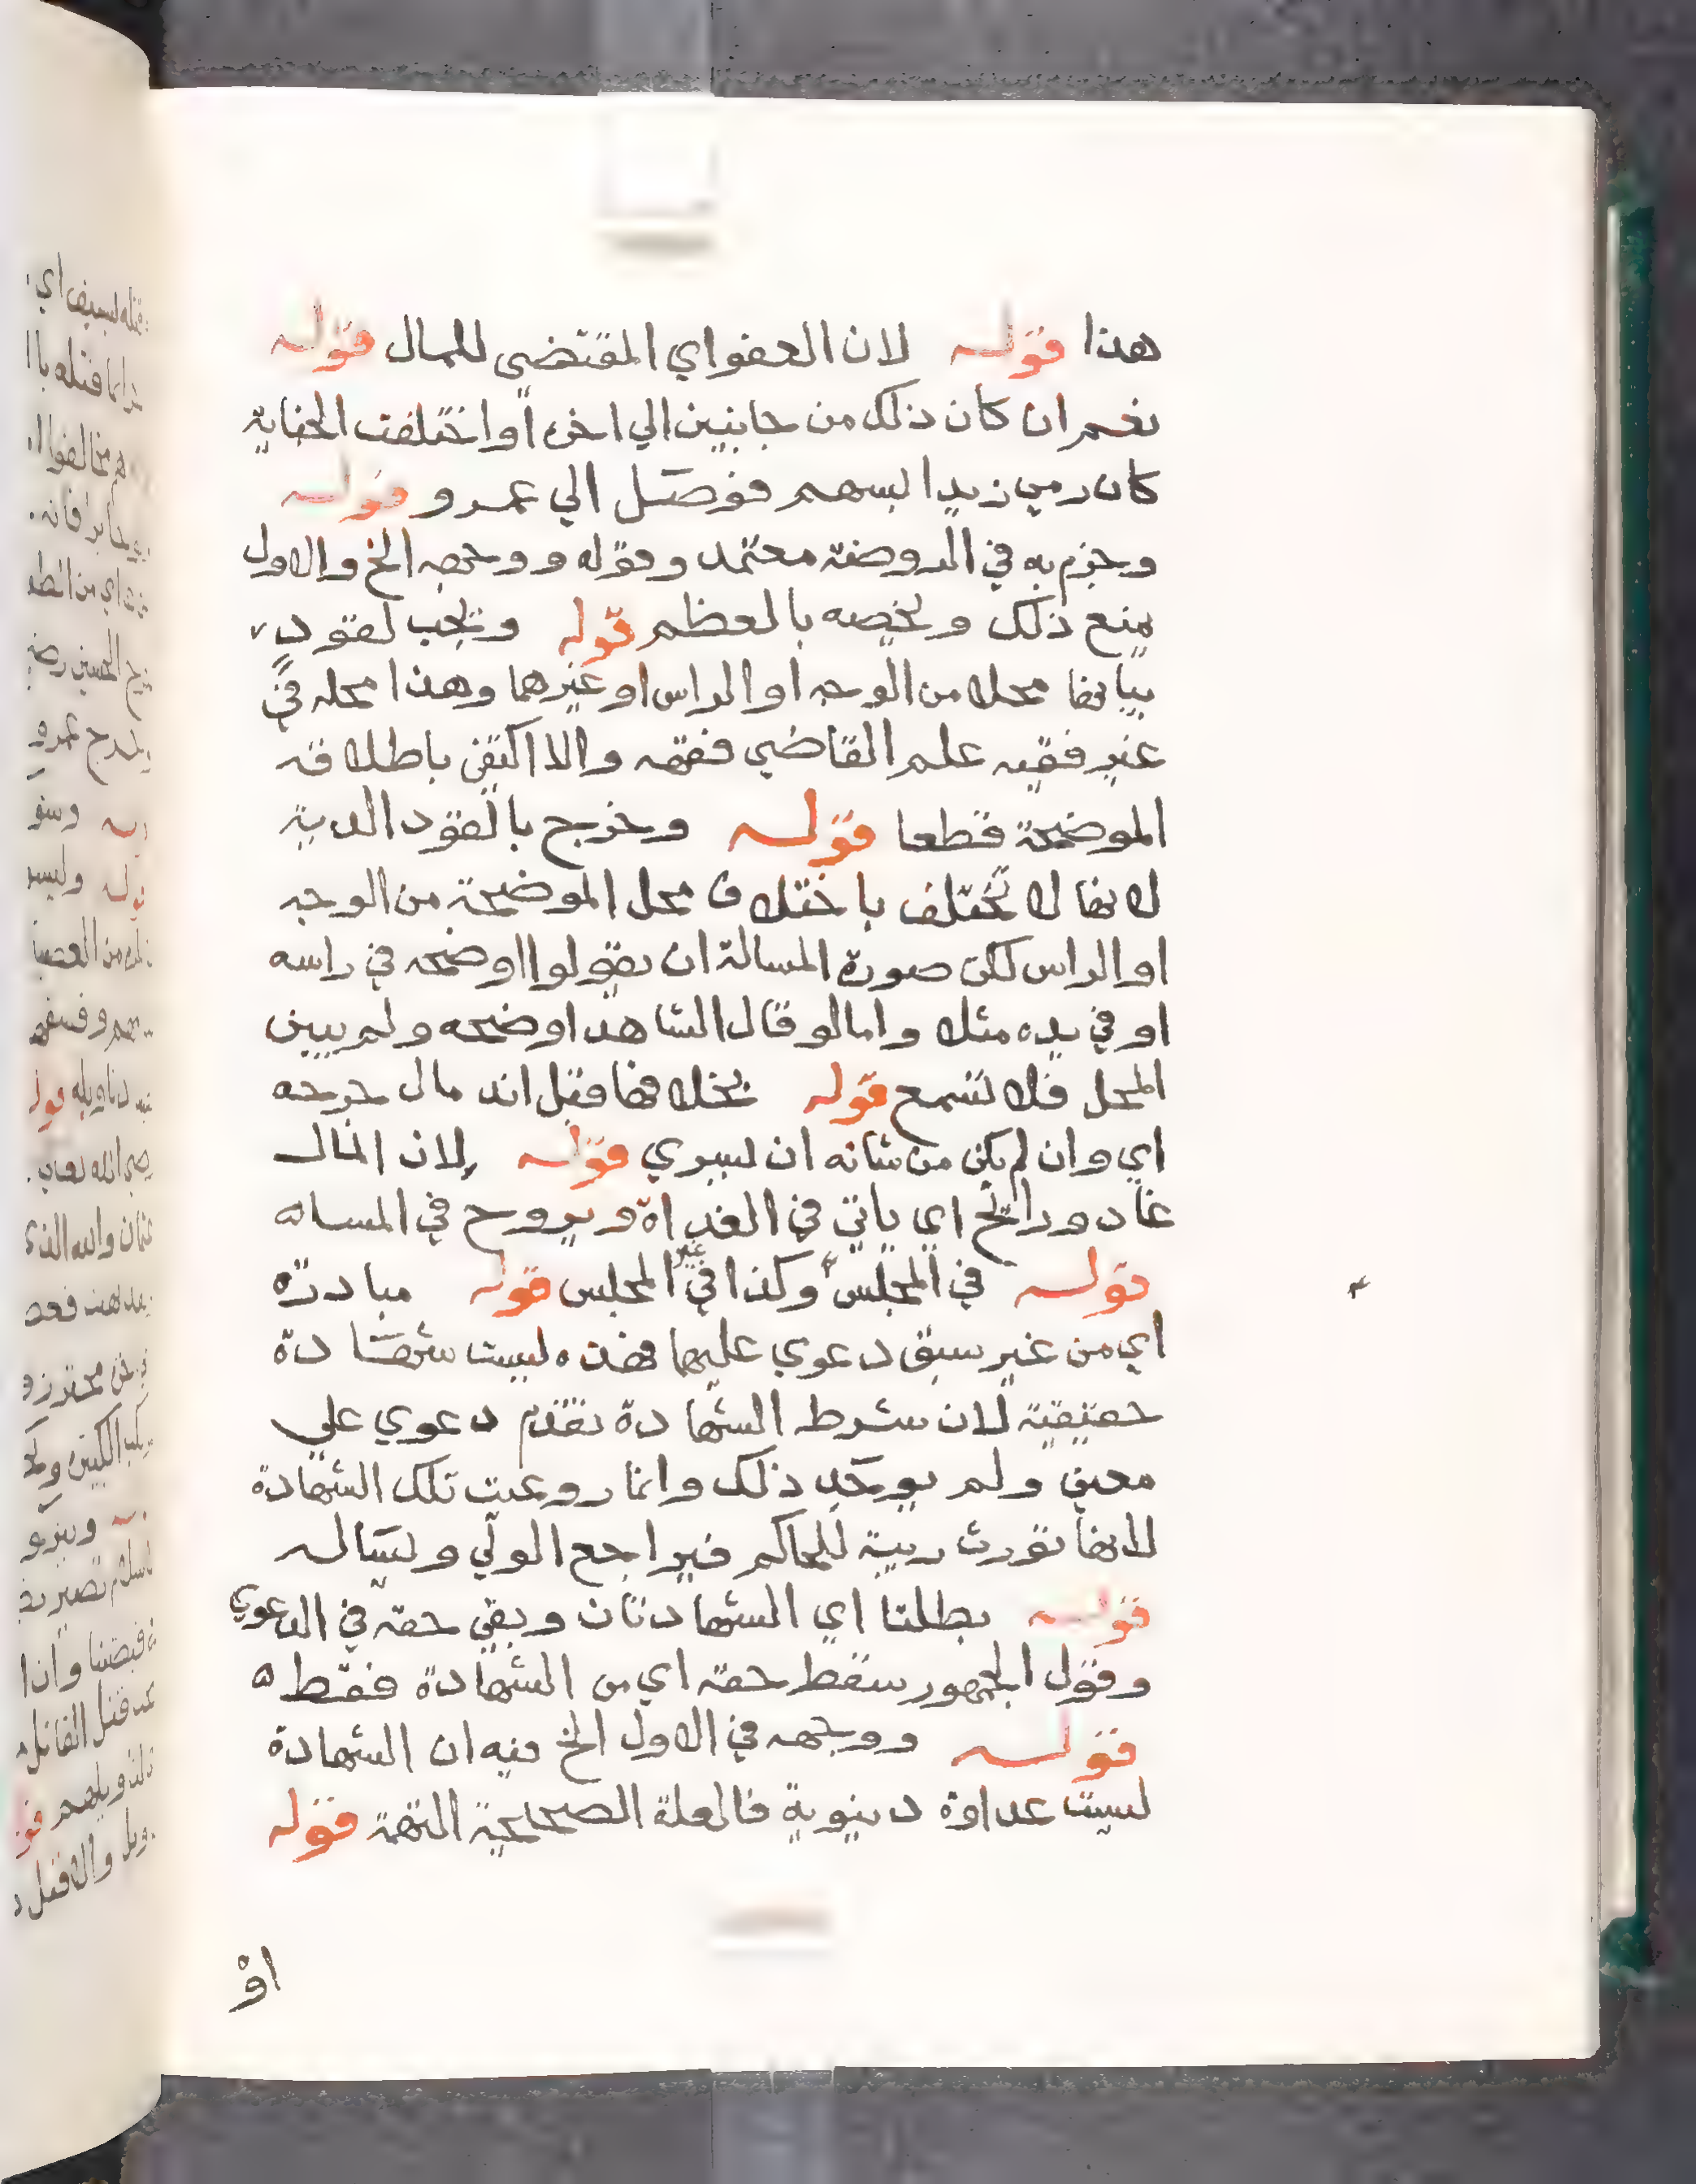 هذا قوله لان العفو اي المقتضي للمال قوله
نعم ان كان ذلك من جانيين الي اخره او اختلفت الجناية
كان رمي زيدا بسهم فوصل الي عمرو قوله
وجزم به في الروضة معتمد وقوله ووجهه الخ والاول
يمنع ذلك ويخصه بالعظم قوله ويجب لقود
بيانها محلا من الوجه او الراس او غيرهما وهذا محله في
غير فقيه علم القاضي فقهه والا اكتفي باطلاقه
الموضحة قطعا قوله وخرج بالقود الدية
لانها لا تختلف باختلاف محل الموضحة من الوجه
او الراس لكن صورة المسالة ان يقولوا اوضحه في راسه
او في يده مثلا واما لو قال الشاهد اوضحه ولم يبين
المحل فلا تسمع قوله بخلافها قبل اند مال جرحه
اي وان لم يكن من شانه ان يسري قوله لان المال
غاد ورايح اي ياتي في الغداة ويروح في المساه
قوله في المجلس وكذا في غير المجلس قوله مبادرة
اي من غير سبق دعوي عليهما فهذه ليست شهادة
حقيقية لان شرط الشهادة تقدم دعوي علي
معين ولم يوجد ذلك وانما روعيت تلك الشهادة
لانها تورث ريبة للحاكم فيراجع الولي ويساله
قوله بطلتا اي الشهادتان وبقي حقه في الدعوي
وقول الجمهور سقط حقه اي من الشهادة فقط ه
قوله ووجهه في الاول الخ فيه ان الشهادة
ليست عداوة دينوية فالعلة الصحيحية التهمة قوله
او